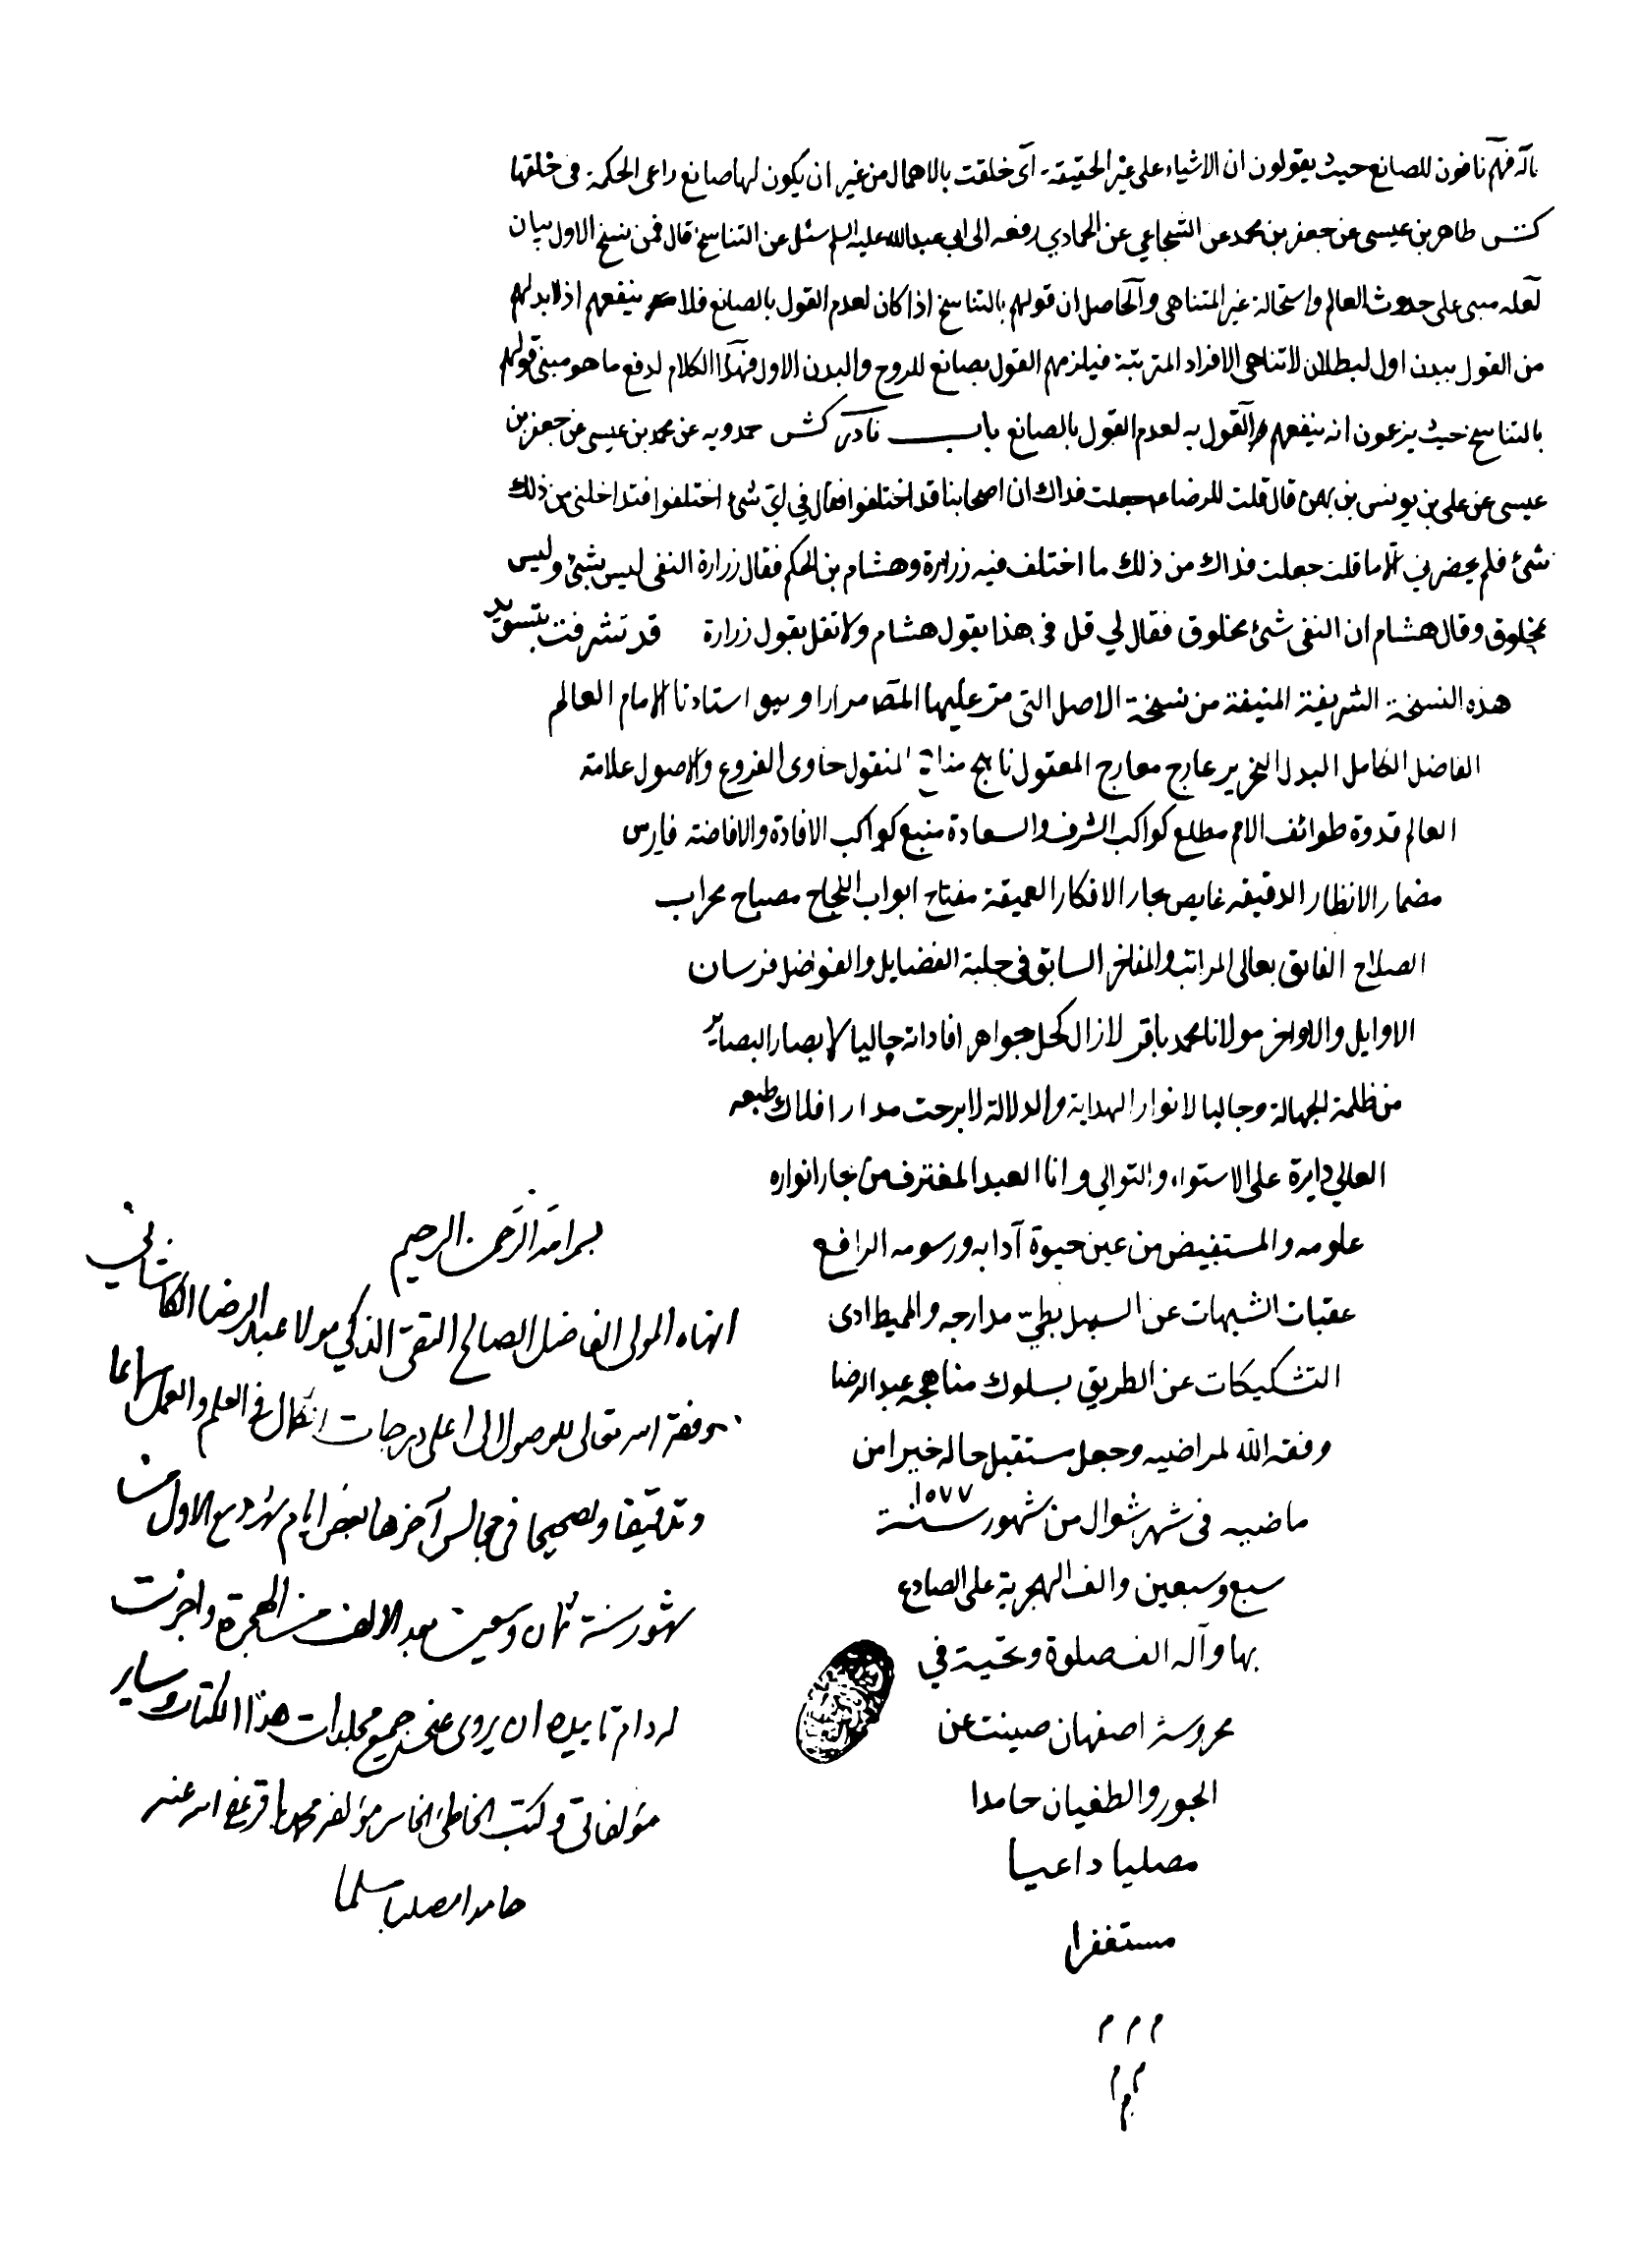 بالله فهم نافون للصانع حيث يقولون ان الاشياء على غير الحقيقة اى خلقت بالاهمال من غير ان يكون لها صانع راعى الحكمة فى خلقها
كش طاهر بن عيسى عن جعفر بن محمد عن الشجاعي عن الحمادي رفعه الى ابي عبدالله عليه السلم سئل عن التناسخ قال فمن نسخ الاول بيان
لعله مبنى على حدوث العالم واستحالة غير المتناهى والحاصل ان قولهم بالتناسخ اذا كان لعدم القول بالصانع فلا ينفعهم اذ لابد لهم
من القول ببدن اول لبطلان لاتناهى الافراد المترتبة فيلزمهم القول بصانع للروح والبدن الاول فهذا الكلام لدفع ما هو مبنى قولهم
بالتناسخ حيث يزعون انه ينفعهم القول به لعدم القول بالصانع باب نادر كش حمدويه عن محمد بن عيسى عن جعفر بن
عيسى عن على بن يونس بن بهمن قال قلت للرضا ع جعلت فداك ان اصحابنا قد اختلفوا فقال في اي شئ اختلفوا فتداخلنى من ذلك
شئ فلم يحضرني الا ما قلت جعلت فداك من ذلك ما اختلف فيه زرارة وهشام بن الحكم فقال زرارة النفى ليس بشئ وليس
بمخلوق وقال هشام ان النفى شئ مخلوق فقال لي قل فى هذا بقول هشام ولا تقل بقول زرارة قد تشرفت بتسويد
هذه النسخة الشريفة المنيفة من نسخة الاصل التى مر عليها مرارا وهو استادنا الامام العالم
الفاضل الكامل البدل النحرير عارج معارج المعقول ناهج المنقول حاوى الفروع والاصول علامة
العالم قدوة طوائف الامم مطلع كواكب الشرف والسعادة منبع كواكب الافادة والافاضة فارس
مضمار الانظار الدقيقه غايص بحار الافكار العميقة مفتاح ابواب النجاح مصباح محراب
الصلاح الفايق بعالى المراتب والمفاخر السابق فى حلبة الفضايل والفواضل فرسان
الاوايل والاواخر مولانا محمد باقر لازال كحل جواهر افاداته جاليا لابصار البصاير
من ظلمة الجهالة وجاليا لانوار الهداية والدلالة لابرحت مدار افلاك طبعه
العالي دايرة على الاستواء والتوالي وانا العبد المغترف من بحار انواره
علومه والمستفيض من عين حيوة آدابه ورسومه الرافع
عقبات الشبهات عن السبيل بطي مدارجه والميط اذى
التشكيكات عن الطريق بسلوك مناهجه عبد الرضا
وفقه الله لمراضيه وجعل مستقبل حاله خيرا من
ماضيه فى شهر شوال من شهور سنة ١٠٧٧
سبع وسبعين والف الهجرية على الصادع
بها وآله الف صلوة وتحية في
محروسة اصفهان صينت عن
الجور والطغيان حامدا
مصليا داعيا
مستغفرا
م م م
م م
م
بسم الله الرحمن الرحيم
انهاه المولى الفاضل الصالح التقى الذكي مولا عبد الرضا الكاشاني
وفقه الله تعالى للوصول الى اعلى درجات الكمال في العلم والعمل سماعا
وتدقيقا وتصحيحا في مجالس آخرها بعض ايام شهر ربيع الاول من
شهور سنة ثمان وسبعين بعد الالف من الهجرة واجزت
له دام تاييده ان يروى عنى جميع مجلدات هذا الكتاب وساير
مؤلفاتى وكتب الخاطئ الخاسر مؤلفه محمد باقر عفى الله عنه
حامدا مصليا مسلما